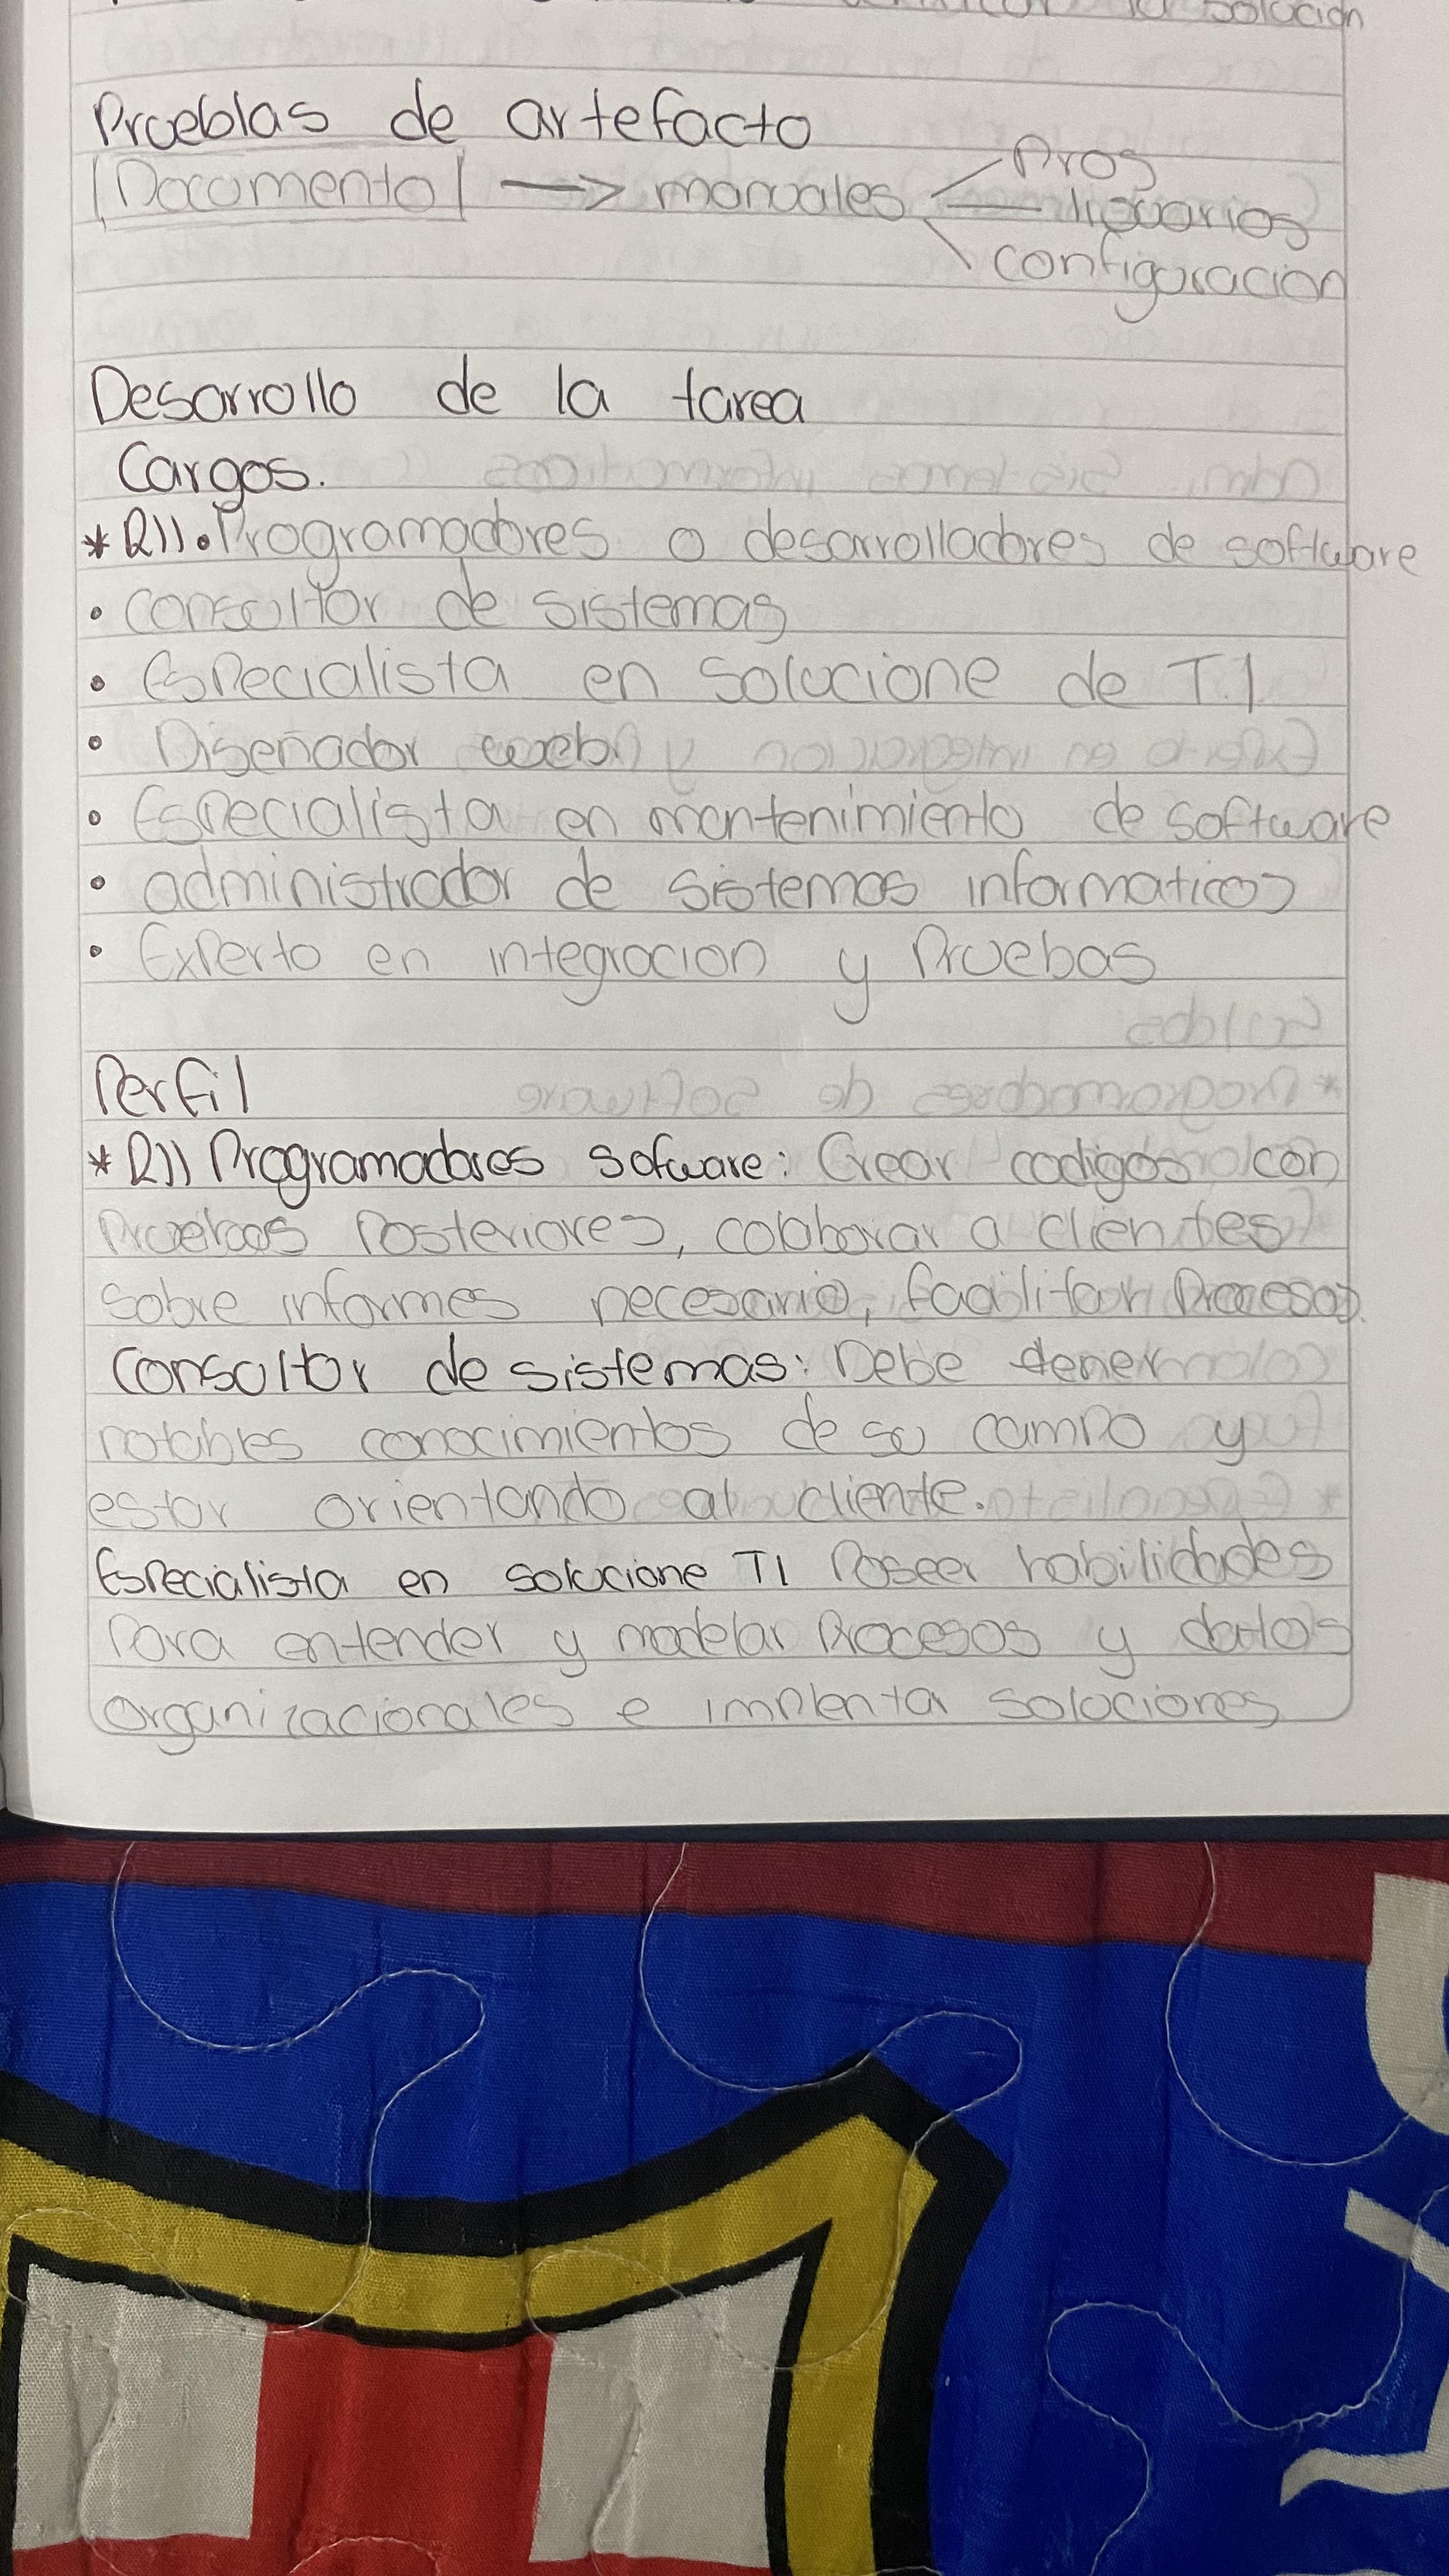 la solución
Prueblas de artefacto
|Documento| —> manuales Pros
usuarios
configuracion
Desarrollo de la tarea
Cargos.
*R// • Programadores o desarrolladores de software
• Consultor de sistemas
• Especialista en solucione de T.I
• Diseñador web
• Especialista en mantenimiento de software
• administrador de sistemas informaticos
• Experto en integracion y Pruebas
Perfil
*R// Programadores sofware: Crear codigos con
Pruebas Posteriores, colaborar a clientes
sobre informes necesario, facilitar Procesos.
Consultor de sistemas: Debe tener
notables conocimientos de su campo y
estar orientando al cliente.
Especialista en solucione TI Poseer habilidades
Para entender y modelar Procesos y datos
organizacionales e implenta soluciones